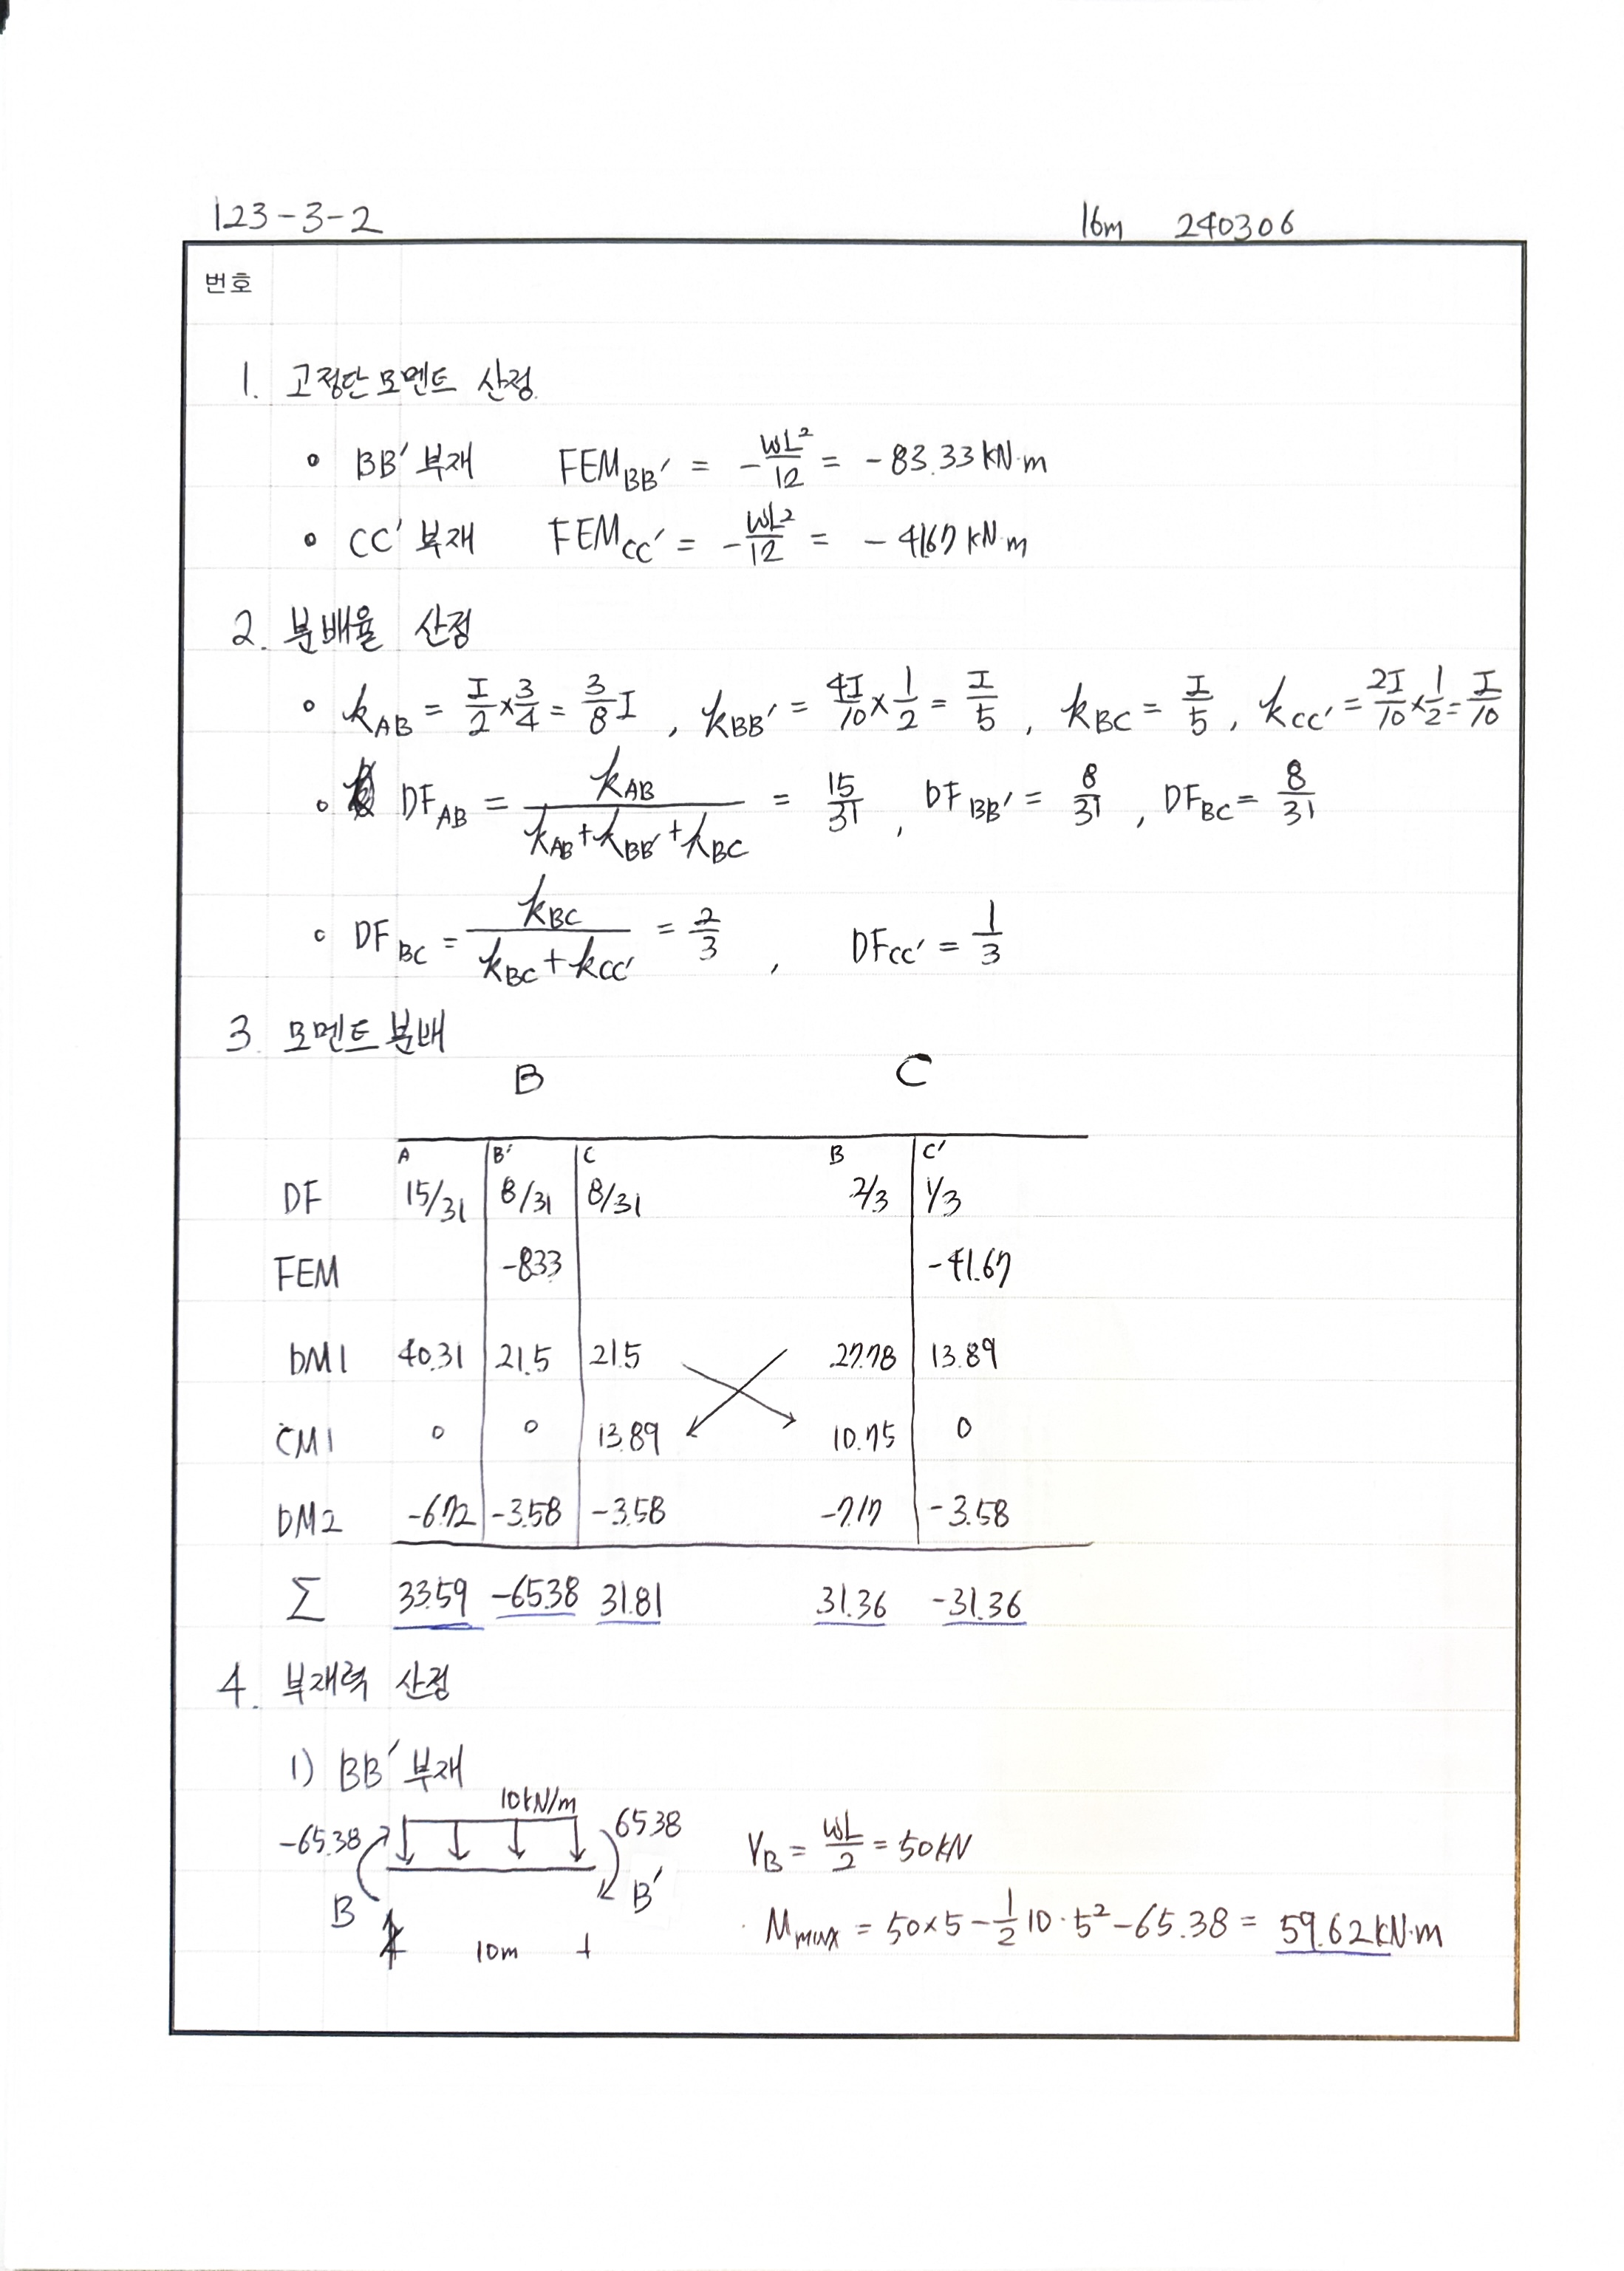 123-3-2 16m 240306
번호
1. 고정단모멘트 산정
∘ BB′ 부재 FEM_BB′ = -wL²/12 = -83.33 kN·m
∘ CC′ 부재 FEM_CC′ = -wL²/12 = -41.67 kN·m
2. 분배율 산정
∘ k_AB = I/2 × 3/4 = 3/8 I , k_BB′ = 4I/10 × 1/2 = I/5 , k_BC = I/5 , k_CC′ = 2I/10 × 1/2 = I/10
∘ DF_AB = k_AB/(k_AB + k_BB′ + k_BC) = 15/31 , DF_BB′ = 8/31 , DF_BC = 8/31
∘ DF_BC = k_BC/(k_BC + k_CC′) = 2/3 , DF_CC′ = 1/3
3. 모멘트분배
B C
A B′ C B C′
DF 15/31 8/31 8/31 2/3 1/3
FEM -83.3 -41.67
DM1 40.31 21.5 21.5 27.78 13.89
CM1 0 0 13.89 10.75 0
DM2 -6.72 -3.58 -3.58 -7.17 -3.58
Σ 33.59 -65.38 31.81 31.36 -31.36
4. 부재력 산정
1) BB′ 부재
10kN/m
-65.38 65.38 V_B = wL/2 = 50kN
B B′
10m M_max = 50×5 - 1/2 10·5² - 65.38 = 59.62kN·m